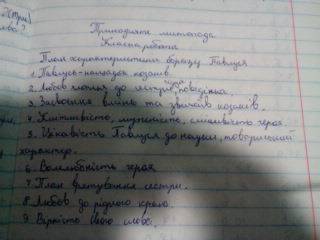 Тринадцяте листопада
Класна робота
План характеристики образу Павлуся
1. Павлусь-нащадок козаків.
2. Любов хлопця до сестри, повсідінка.
3. Засвоєння вмінь та звичаїв козаків.
4. Кмітливість, мужність, сміливість героя.
5. Цікавість Павлуся до науки, товариський
характер.
6. Волелюбність героя
7. План врятування сестри.
8. Любов до рідного краю.
9. Вірність свому слову.